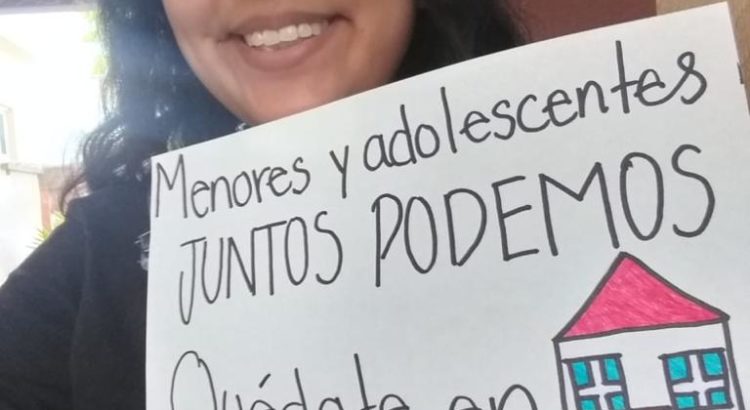 Menores y adolescentes
JUNTOS PODEMOS
Quédate en